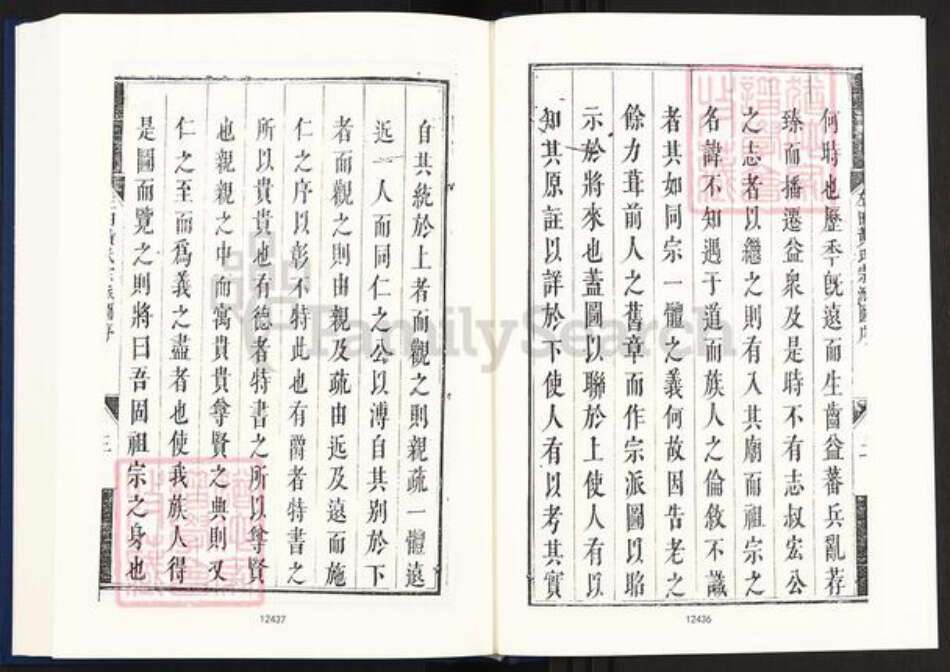 何時也歷年既遠而生齒益蕃兵亂荐
臻而播遷益衆及是時不有志叔宏公
之志者以繼之則有入其廟而祖宗之
名諱不知遇于道而族人之倫敘不識
者其如同宗一體之義何故因告老之
餘力葺前人之舊章而作宗派圖以貽
示於將來也蓋圖以聯於上使人有以
知其原註以詳於下使人有以考其實
二
12436
自其統於上者而觀之則親疏一體遠
近一人而同仁之公以溥自其别於下
者而觀之則由親及疏由近及遠而施
仁之序以彰不特此也有爵者特書之
所以貴貴也有德者特書之所以尊賢
也親親之中而寓貴貴尊賢之典則又
仁之至而爲義之盡者也使我族人得
是圖而覽之則將曰吾固祖宗之身也
三
12437
FamilySearch